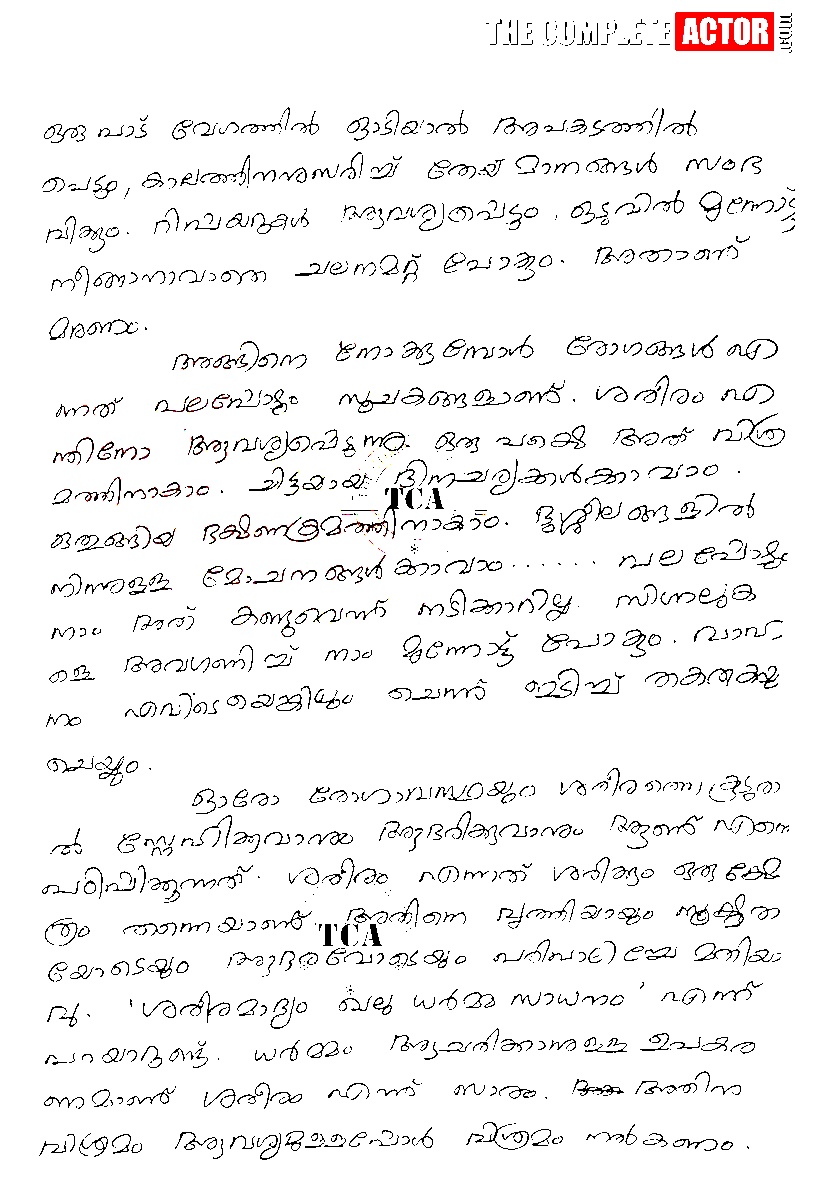 THE COMPLETE ACTOR
ഒരുപാട് വേഗത്തിൽ ഓടിയാൽ അപകടത്തിൽ
പെടും, കാലത്തിനനുസരിച്ച് തേയ്മാനങ്ങൾ സംഭ
വിക്കും. റിപ്പയറുകൾ ആവശ്യപ്പെടും, ഒടുവിൽ മുന്നോട്ടു
നീങ്ങാനാവാതെ ചലനമറ്റ് പോകും. അതാണ്
മരണം.
അങ്ങിനെ നോക്കുമ്പോൾ രോഗങ്ങൾ എ
ന്നത് പലപ്പോഴും സൂചകങ്ങളാണ്. ശരീരം എ
ന്തിനോ ആവശ്യപ്പെടുന്നു. ഒരു പക്ഷെ അത് വിശ്ര
മത്തിനാകാം. ചിട്ടയായ ദിനചര്യക്കൾക്കാവാം.
TCA
ഒതുങ്ങിയ ഭക്ഷണക്രമത്തിനാകാം. ദുശ്ശീലങ്ങളിൽ
നിന്നുള്ള മോചനങ്ങൾക്കാവാം...... പലപ്പോഴും
നാം അത് കണ്ടുവെന്ന് നടിക്കാറില്ല. സിഗ്നലുക
ളെ അവഗണിച്ച് നാം മുന്നോട്ട് പോകും. വാഹ
നം എവിടെയെങ്കിലും ചെന്ന് ഇടിച്ച് തകരുകയു
ചെയ്യും.
ഓരോ രോഗാവസ്ഥയും ശരീരത്തെ കൂടുത
ൽ സ്നേഹിക്കുവാനും ആദരിക്കുവാനും ആണ് എന്നെ
പഠിപ്പിക്കുന്നത്. ശരീരം എന്നത് ശരിക്കും ഒരു ക്ഷേ
ത്രം തന്നെയാണ്. അതിനെ വൃത്തിയായും സൂക്ഷ്മത
TCA
യോടെയും ആദരവോടെയും പരിപാലിച്ചേ മതിയാ
വൂ. 'ശരീരമാദ്യം ഖലു ധർമ്മ സാധനം' എന്ന്
പറയാറുണ്ട്. ധർമ്മം ആചരിക്കാനുള്ള ഉപകര
ണമാണ് ശരീരം എന്ന് സാരം. അതിന
വിശ്രമം ആവശ്യമുള്ളപ്പോൾ വിശ്രമം നൽകണം.